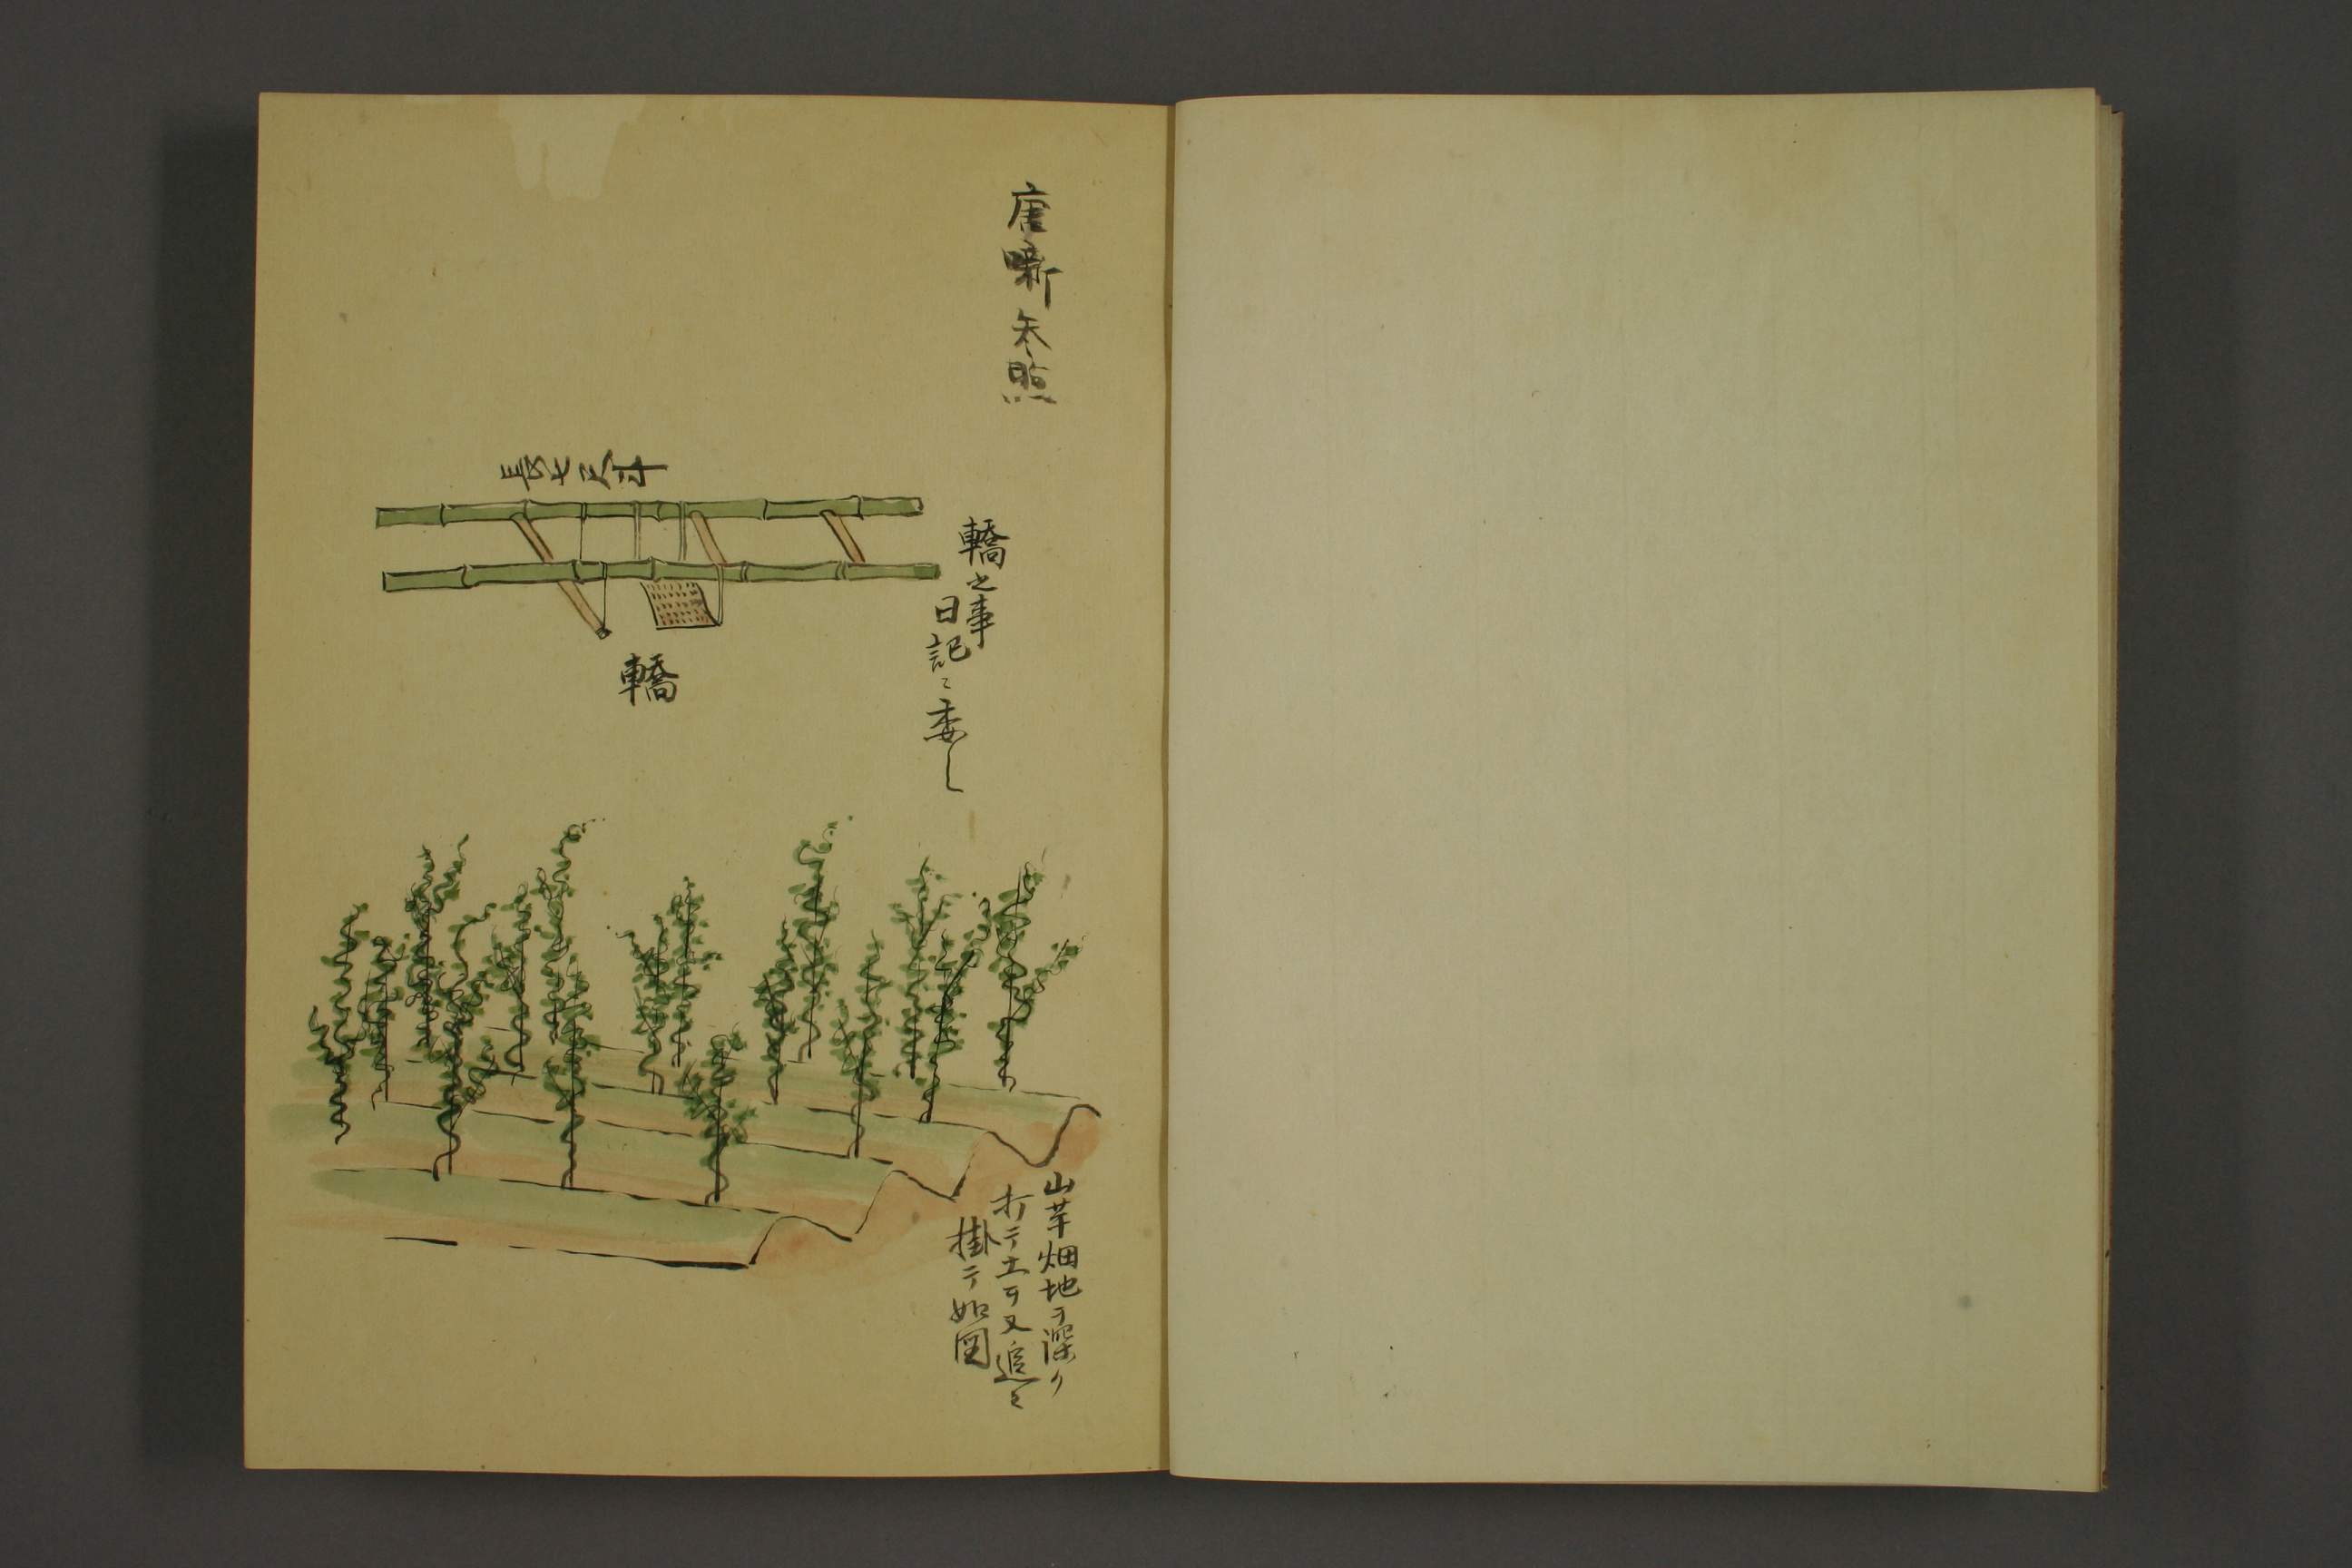 唐噺矢照
轎之事
日記ニ委し
長サ七尺斗
轎
山芋畑地ヲ深ク
打テ土ヲ又追々
掛テ如図